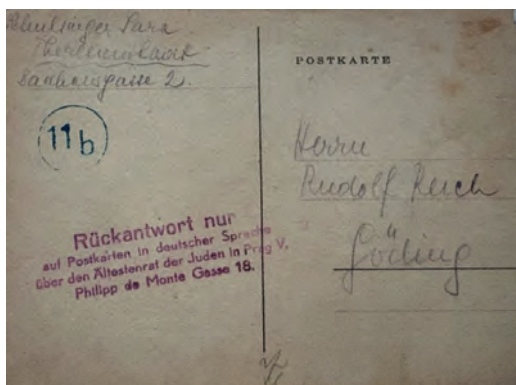 Sara
Theresienstadt
2.
11b
Rückantwort nur
auf Postkarten in deutscher Sprache
über den Ältestenrat der Juden in Prag V,
Philipp de Monte Gasse 18.
POSTKARTE
Herrn
Rudolf Reich
Göding